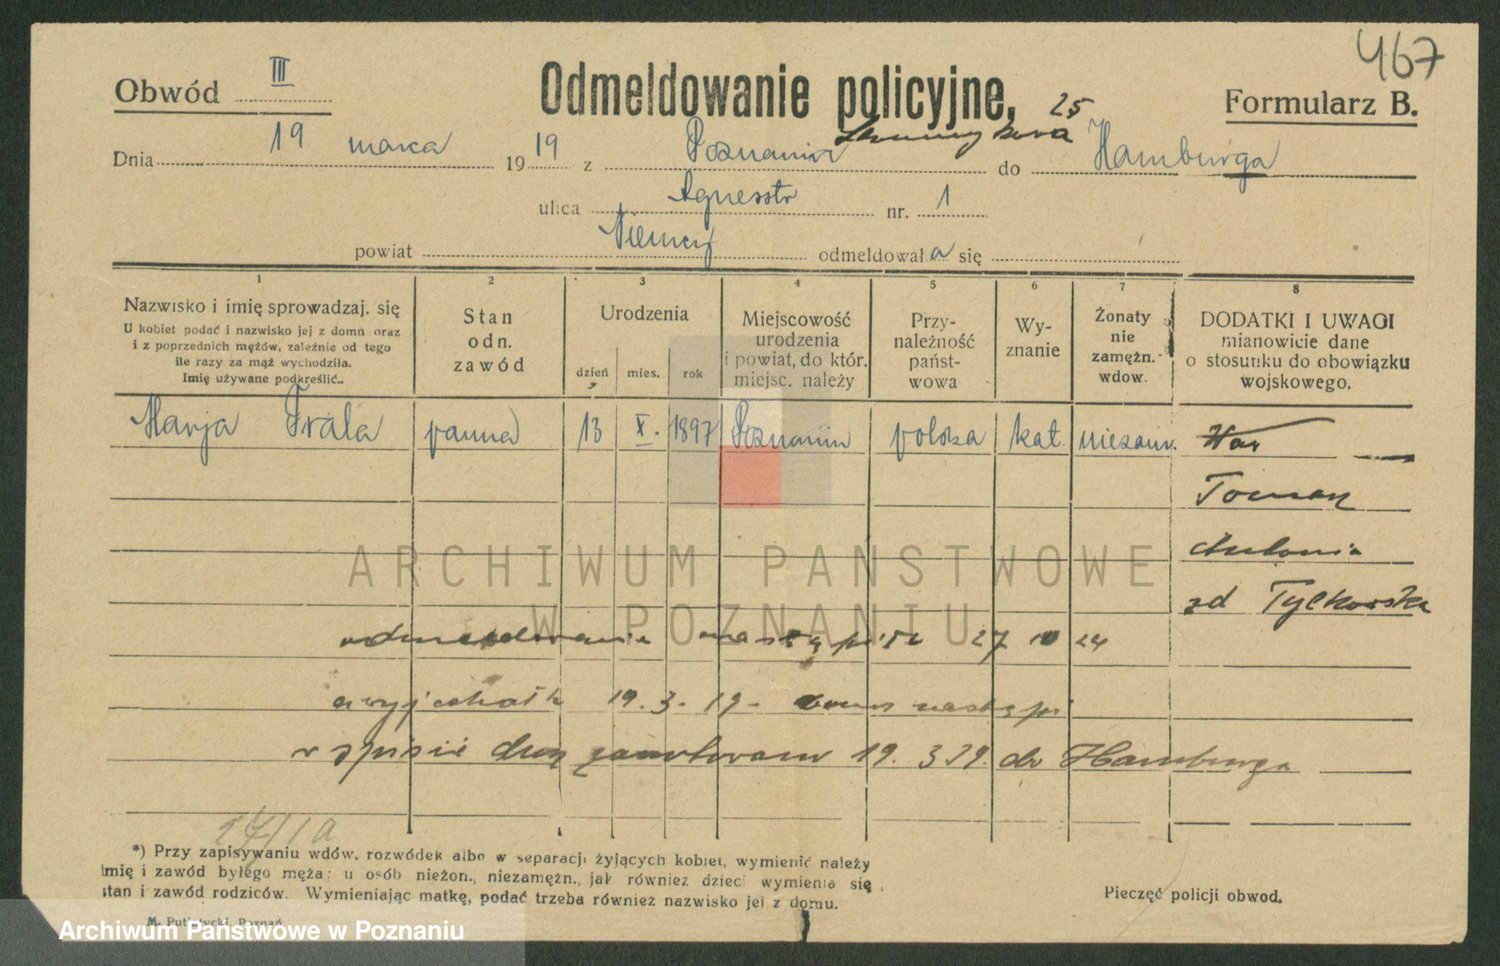 467
Obwód III Odmeldowanie policyjne, 25 Formularz B.
Dnia 19 marca 1919 z Poznania do Hamburga
ulica Agnesstr nr. 1
powiat Niemcy odmeldowała się
1 2 3 4 5 6 7 8
Nazwisko i imię sprowadzaj. się
U kobiet podać i nazwisko jej z domu oraz
i z poprzednich mężów, zależnie od tego
ile razy za mąż wychodziła.
Imię używane podkreślić..
Stan
odn.
zawód
Urodzenia
dzień mies. rok
Miejscowość
urodzenia
i powiat, do któr.
miejsc. należy
Przy-
należność
państ-
wowa
Wy-
znanie
Żonaty
nie
zamężn.
wdow.
DODATKI I UWAGI
mianowicie dane
o stosunku do obowiązku
wojskowego.
Marja Frala panna 13 X. 1897 Poznaniu polska kat. niezam.
Toman
Antonia
zd Tyckorska
odmeldowanie nastąpiło 27 24
a wyjechała 19.3.19- nastąpi
w spisie zanotowano 19.3.29. do Hamburga
27/1a
*) Przy zapisywaniu wdów, rozwódek albo w separacji żyjących kobiet, wymienić należy
imię i zawód byłego męża; u osób nieżon., niezamężn., jak również dzieci wymienia się
stan i zawód rodziców. Wymieniając matkę, podać trzeba również nazwisko jej z domu.
Pieczęć policji obwod.
M. Putiatycki, Poznań
ARCHIWUM PAŃSTWOWE
W POZNANIU
Archiwum Państwowe w Poznaniu